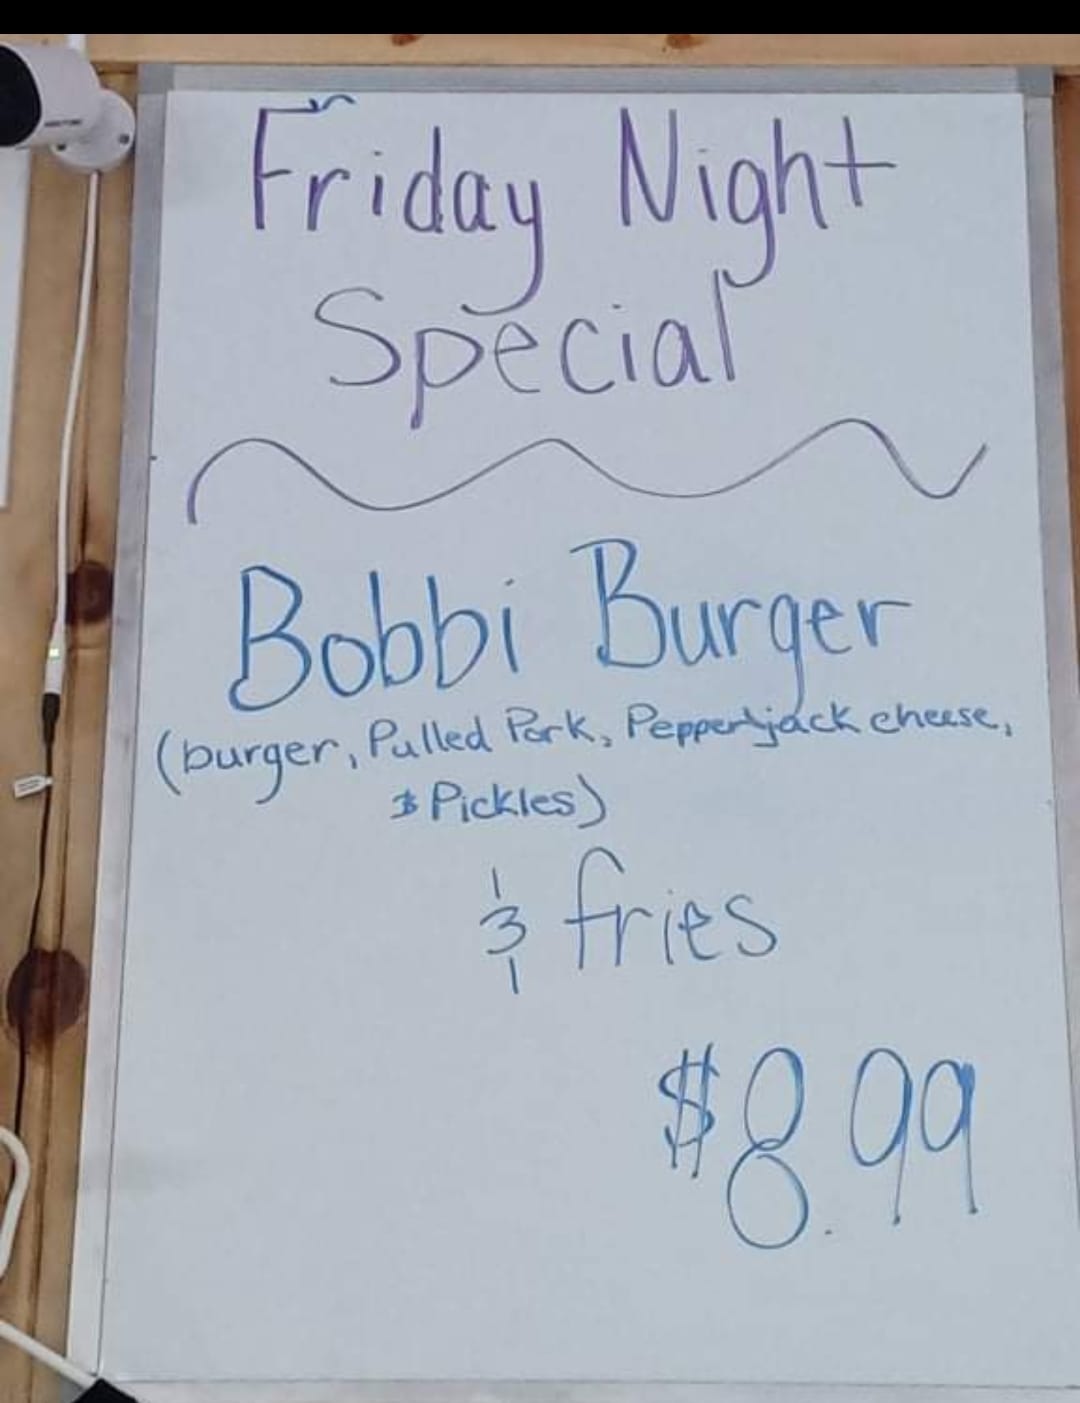 Friday Night
Special
Bobbi Burger
(burger, Pulled Pork, Pepperjack cheese,
& Pickles)
& fries
$8.99